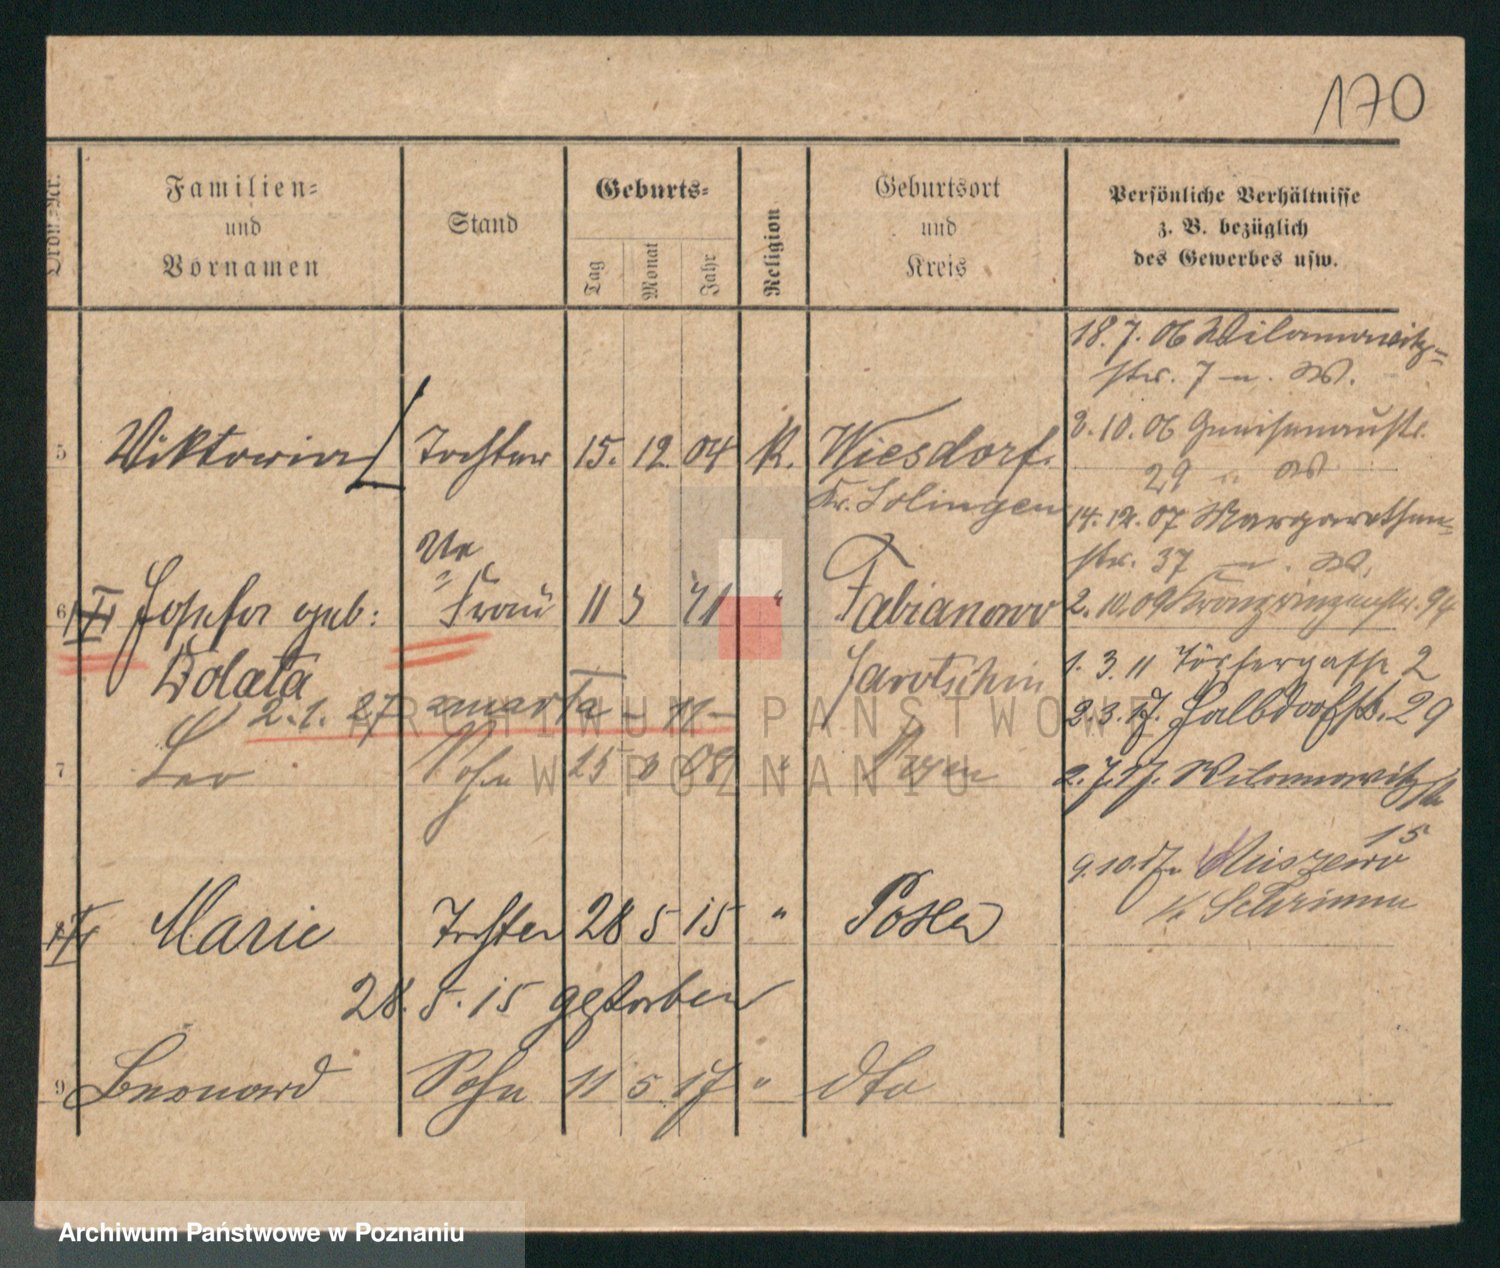 170
Ordn.=Nr.
Familien=
und
Vornamen
Stand
Geburts=
Tag
Monat
Jahr
Religion
Geburtsort
und
Kreis
Persönliche Verhältnisse
z. B. bezüglich
des Gewerbes usw.
18.7.06 Wilamowitz=
str. 7 W.
5 Viktoria Tochter 15. 12. 04 K. Wiesdorf.
Kr. Solingen
10.06 Gneisenaustr.
29 W
14.12.07 Margarethen=
str. 37 W.
6 Josefa geb: Frau 11 3 71 " Fabianowo
2.10.09 Kronprinzenstr. 94
Wolata
Jarotschin
1.3.11 Töpfergasse 2
2.1.27 zmarła
2.3.17. Halbdorfstr. 29
7 Leo Sohn 15 08 " Posen
2.7.17. Wilamowitzstr
15
9.10.17.
Schrimm
8 Marie Tochter 28 5 15 " Posen
28.5.15 gestorben
9 Leonard Sohn 11 5 17 " dto
ARCHIWUM PAŃSTWOWE
W POZNANIU
Archiwum Państwowe w Poznaniu